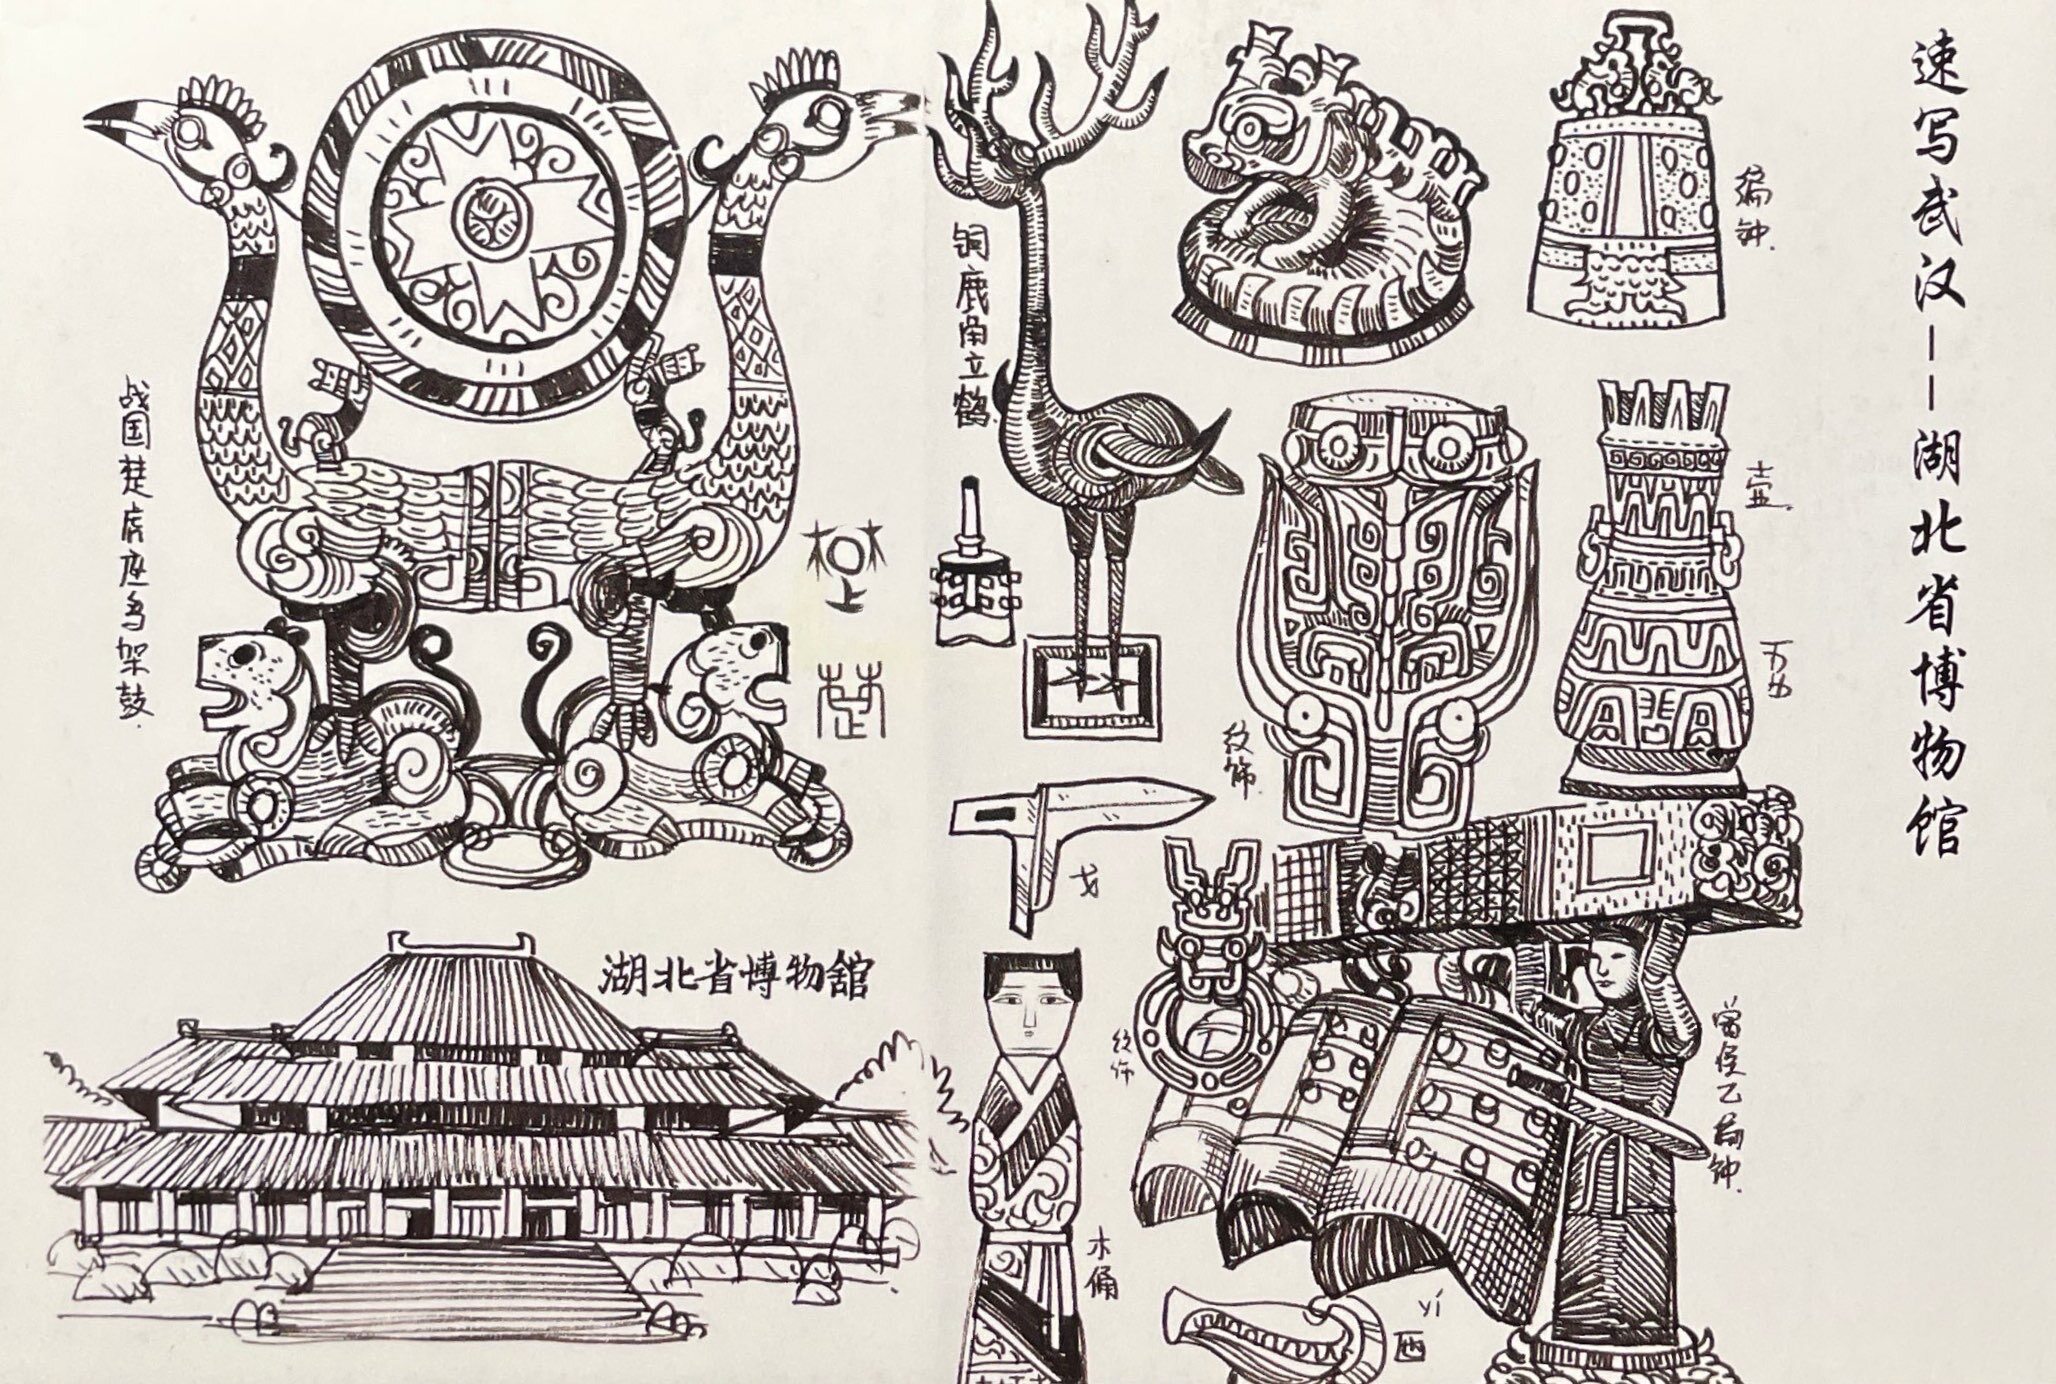 速写武汉——湖北省博物馆
编钟.
壶.
曾侯乙编钟.
纹饰.
纹饰
yí
匜
戈
木俑
铜鹿角立鹤.
楚
战国楚虎座鸟架鼓.
湖北省博物館